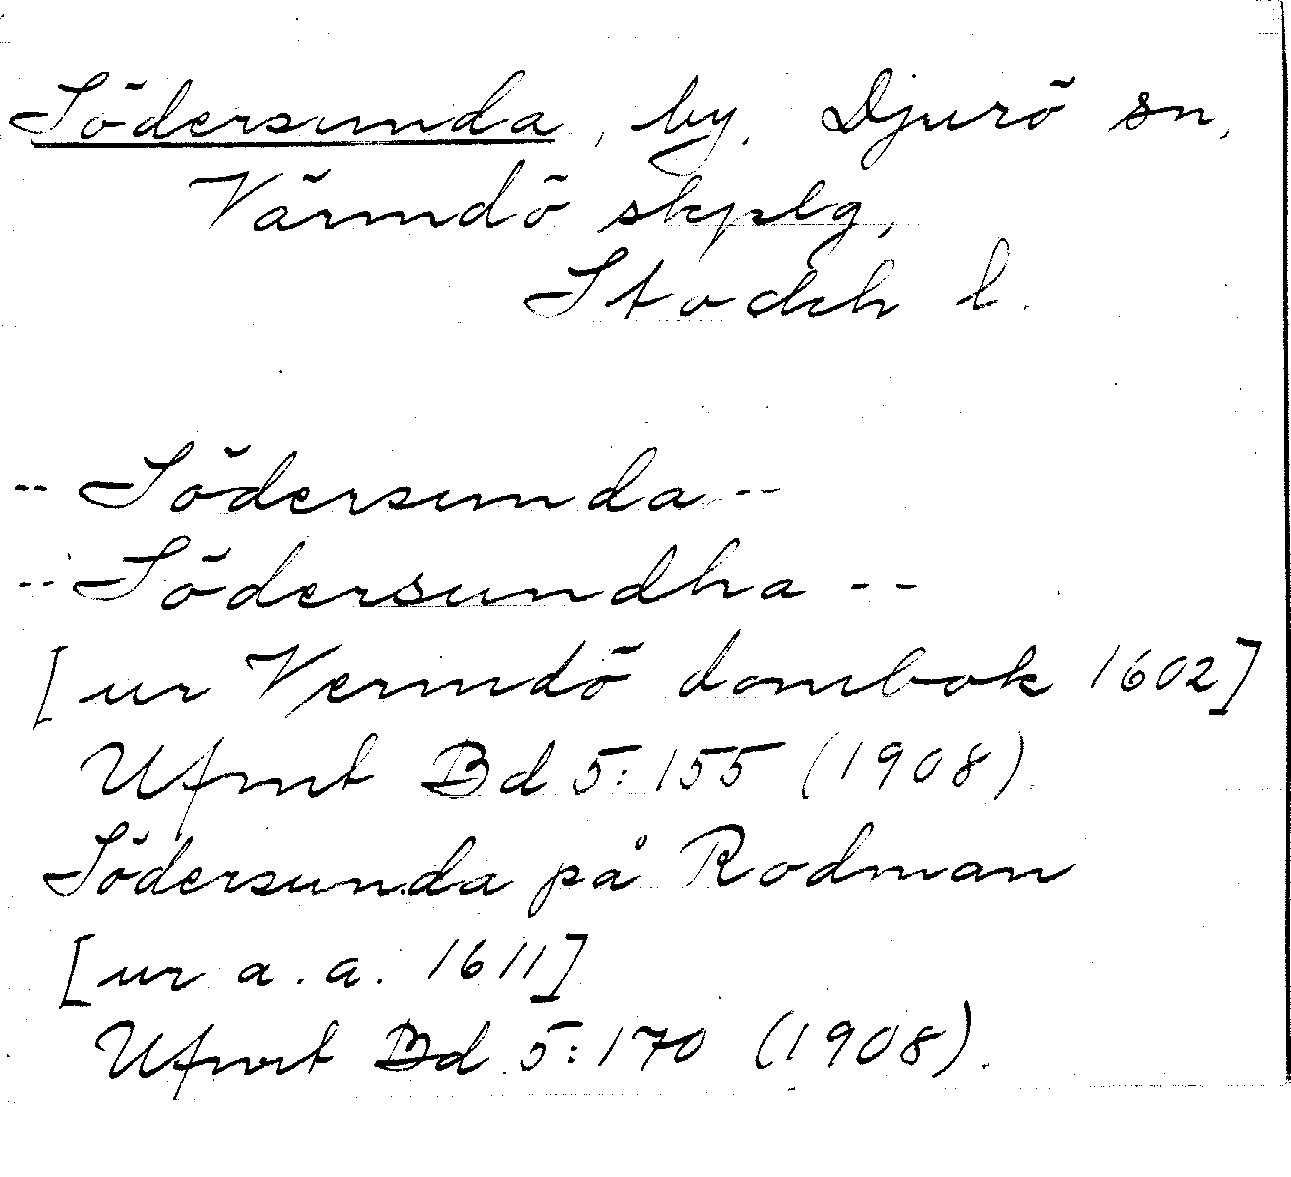 Södersunda, by. Djurö sn,
Värmdö skplg,
Stockh l.
-- Södersunda --
-- Södersundha --
[ur Vermdö dombok 1602]
Ufmt Bd 5:155 (1908)
Södersunda på Rodman
[ur a.a. 1611]
Ufmt Bd 5:170 (1908).